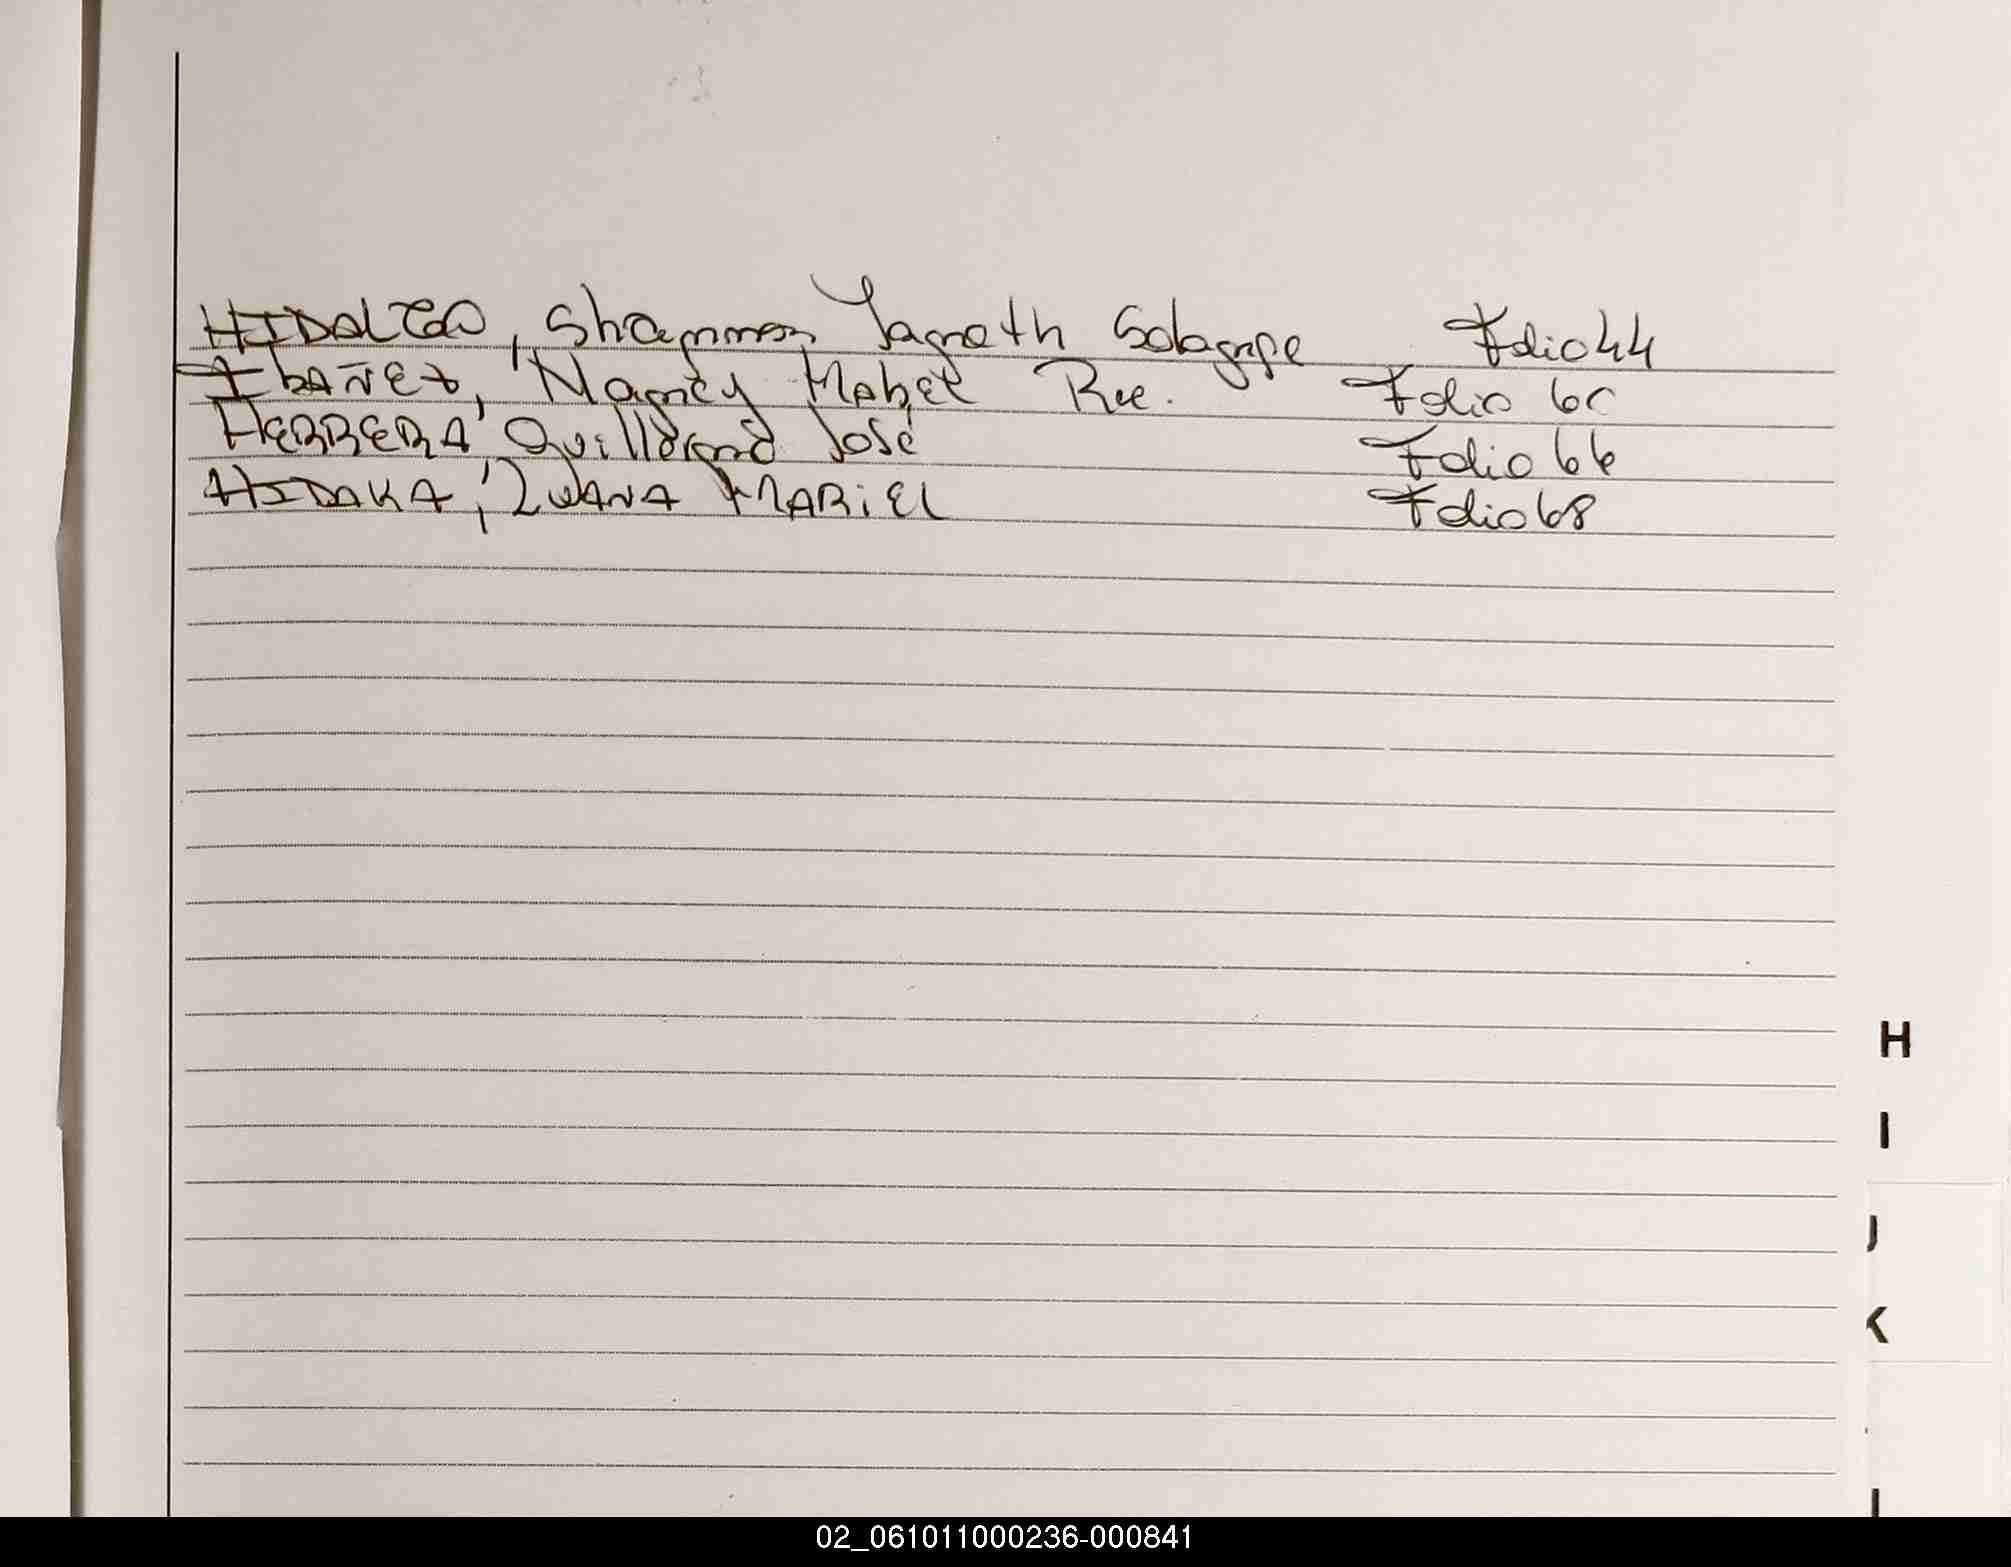 HIDALGO, Shammon Janeth Solange Folio 44
IBAÑEZ, Nancy Mabel Rec. Folio 60
HERRERA, Guillermo José Folio 66
HIDAKA, LUANA MARIEL Folio 68
H
I
J
K
02_061011000236-000841